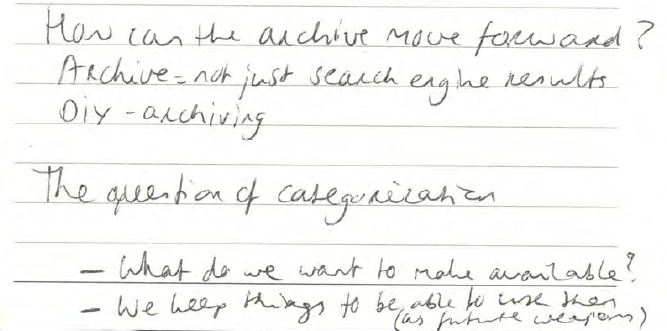 How can the archive move forward?
Archive = not just search engine results
DIY - archiving
The question of categorization
- What do we want to make available?
- We keep things to be able to use them
(as future weapons)